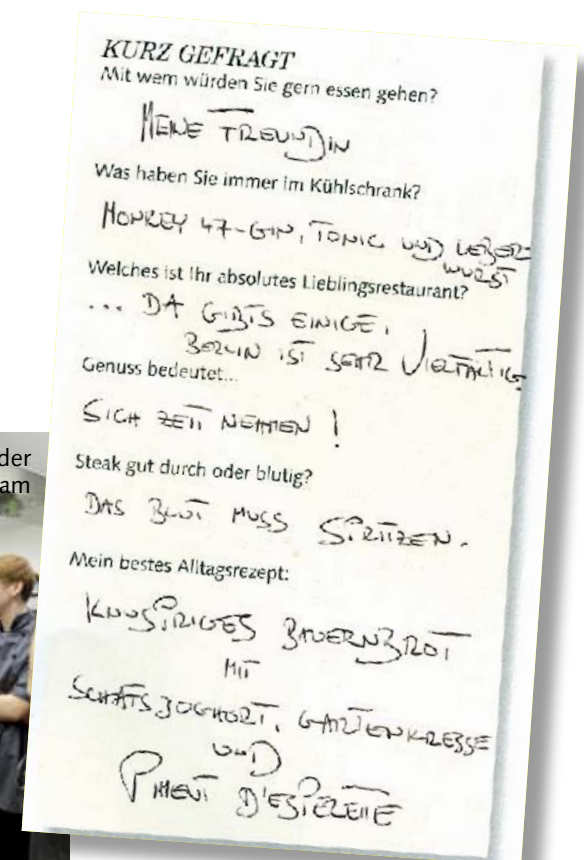 KURZ GEFRAGT
Mit wem würden Sie gern essen gehen?
MEINE FREUNDIN
Was haben Sie immer im Kühlschrank?
MONKEY 47-GIN, TONIC UND LEBER
WURST
Welches ist Ihr absolutes Lieblingsrestaurant?
... DA GIBTS EINIGE,
BERLIN IST SEHR VIELFÄLTIG
Genuss bedeutet...
SICH ZEIT NEHMEN !
Steak gut durch oder blutig?
DAS BLUT MUSS SPRITZEN.
Mein bestes Alltagsrezept:
KNUSPRIGES BAUERNBROT
MIT
SCHAFSJOGHURT, GARTENKRESSE
UND
PIMENT D'ESPELETTE
der
am